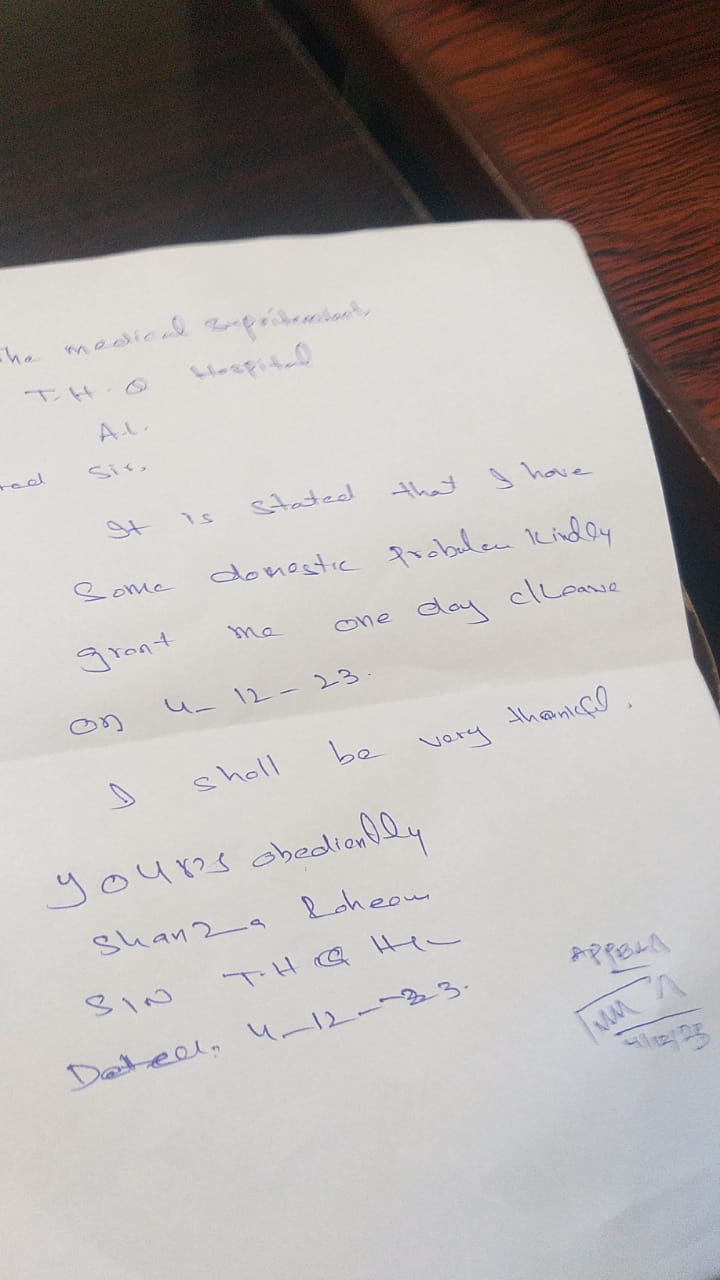 The medical supritendent
T.H.Q Hospital
A.L.
ted Sir,
It is stated that I have
Some domestic Probulem Kindly
grant me one day c/Leave
on 4-12-23.
I shall be very thankful.
yours obediently
Shanza Raheem
S/N T.H.Q
Dated. 4-12-23.
4/12/23